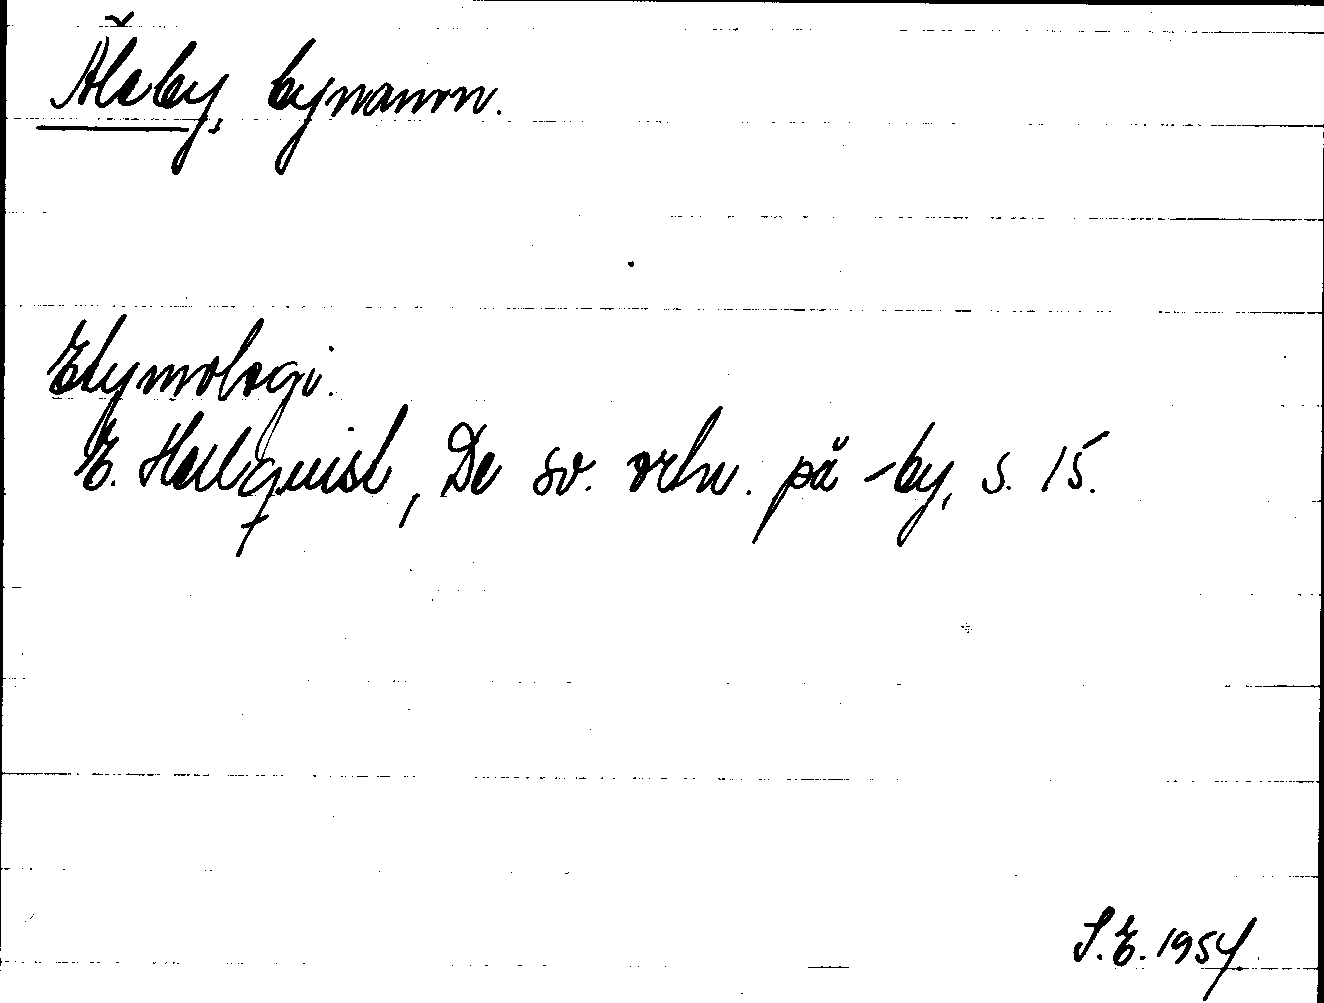 Åleby, bynamn.
Etymologi.
E. Hellquist, De sv. ortn. på -by, s. 15.
S.E. 1954.